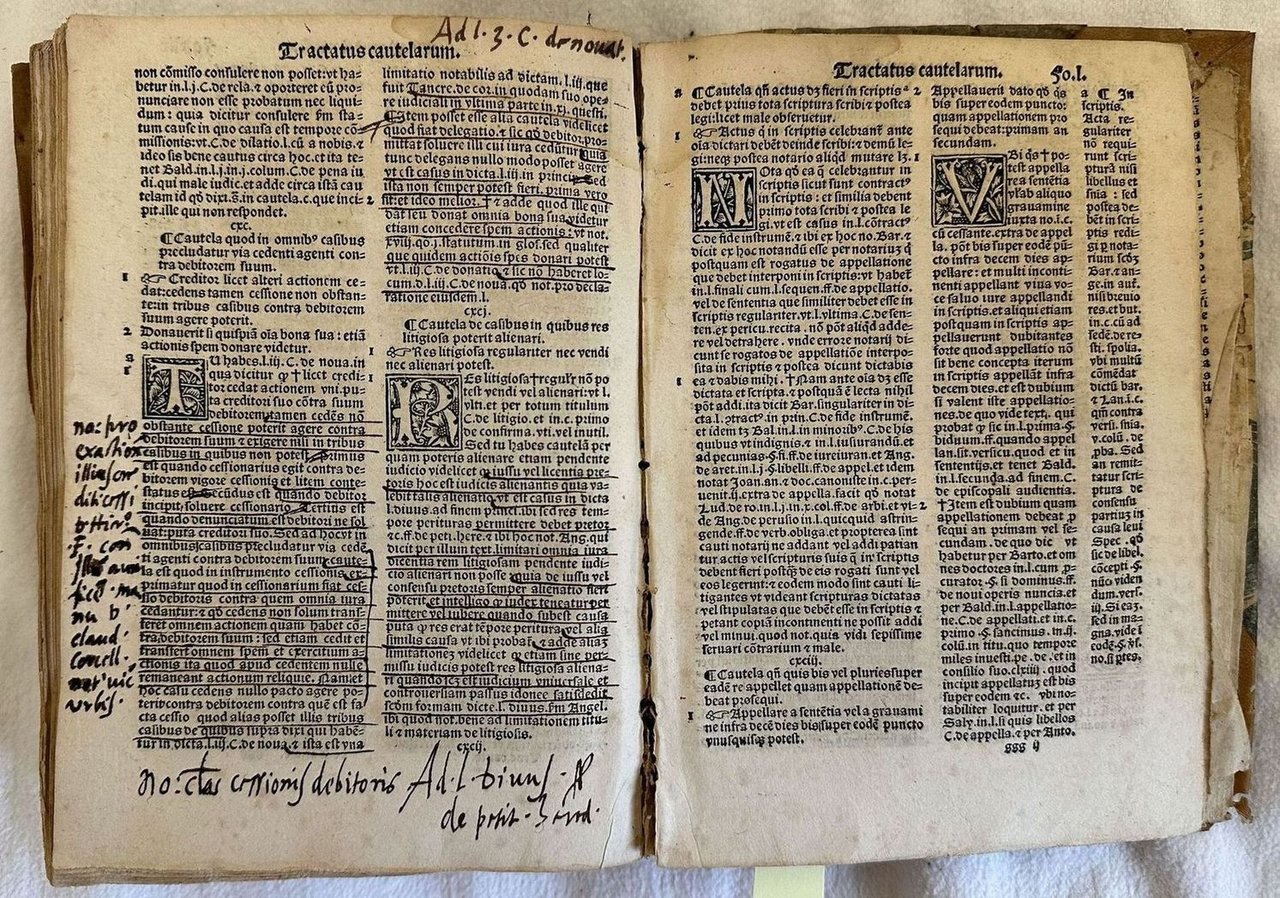 Ad l. 3. C. de nouat.
Tractatus cautelarum.
non cōmisso consulere non posset: vt ha-
betur in.l.j.C.de rela. ⁊ oporteret eū pro-
nunciare non esse probatum nec liqui-
dum: quia dicitur consulere ꝑm sta-
tum cause in quo causa est tempore cō-
missionis: vt.C.de dilatio.l.cū a nobis. ⁊
ideo sis bene cautus circa hoc. et ita te-
net Bald.in.l.j.in.j.colum.C.de pena iu-
di.qui male iudic. et adde circa istā cau
telam id qd̄ dixi.s̄.in cautela.c.que inci-
pit.ille qui non respondet.
cxc.
¶ Cautela quod in omnibꝰ casibus
precludatur via cedenti agenti con-
tra debitorem suum.
1 ☞ Creditor licet alteri actionem ce-
dat: cedens tamen cessione non obstan-
te: in tribus casibus contra debitorem
suum agere poterit.
2 Donauerit si quispiā oīa bona sua: etiā
actionis spem donare videtur.
TU habes.l.iij.C.de noua.in
qua dicitur ꝙ † licet credi-
tor cedat actionem vni.pu-
ta creditori suo cōtra suum
debitorem tamen cedēs nō
obstante cessione poterit agere contra
debitorem suum ⁊ exigere nisi in tribus
casibus in quibus non potest. Primus
est quando cessionarius egit contra de-
bitorem vigore cessionis ⁊ litem conte-
status est. Secūdus est quando debitor
incipit soluere cessionario. Tertius est
quando denunciatum est debitori ne sol
uat: puta creditori suo. Sed ad hoc vt in
omnibus casibus precludatur via cedē
ti agenti contra debitorem suum caute-
la est quod in instrumento cessionis ex-
primatur quod in cessionarium fiat ces-
sio debitoris contra quem omnia iura
cedantur: ⁊ qd̄ cedens non solum trans-
feret omnem actionem quam habet cō-
tra debitorem suum: sed etiam cedit et
transfert omnem spem et exercitium a-
ctionis ita quod apud cedentem nulle
remaneant actionum reliquie. Nam et
hoc casu cedens nullo pacto agere po-
terit contra debitorem contra quē est fa
cta cessio quod alias posset illis tribus
casibus de quibus supra dixi qui habē-
tur in dicta.l.iij.C.de noua. ⁊ ista est vna
limitatio notabilis ad dictam.l.iij.que
fuit Tancre.de cor.in quodam suo ope-
re iudiciali in vltima parte in.xj.questi.
Item posset esse alia cautela videlicet
quod fiat delegatio. ⁊ sic qd̄ debitor pro-
mittat soluere illi cui iura cedūtur quia
tunc delegans nullo modo posset agere
vt est casus in dicta.l.iij.in princi. Sed
ista non semper potest fieri. prima vero
sit: et ideo melior. † ⁊ adde quod ille qui
dat seu donat omnia bona sua videtur
etiam concedere spem actionis: vt not.
xvij.qō.j.statutum in glos.sed qualiter
que quidem actiōis spes donari potest
vt.l.iij.C.de donatio. ⁊ sic nō haberet lo-
cum.d.l.iij.C.de noua.qd̄ not.pro decla-
ratione eiusdem.l.
cxcj.
¶ Cautela de casibus in quibus res
litigiosa poterit alienari.
1 ☞ Res litigiosa regulariter nec vendi
nec alienari potest.
REs litigiosa † regulr̄ nō po
test vendi vel alienari: vt.l.
vlti.et per totum titulum
C.de litigio.et in.c.primo
de confirma.vti.vel inutil.
Sed tu habes cautelā per
quam poteris alienare etiam pendente
iudicio videlicet ꝙ iussu vel licentia pre-
toris hoc est iudicis alienantis quia va-
lebit talis alienatio: vt est casus in dicta
l.diuus.ad finem
pore perituras permittere debet pretor
⁊ c.ff.de peti.here. ⁊ ibi hoc not.Ang.qui
dicit per illum text.limitari omnia iura
dicentia rem litigiosam pendente iudi-
cio alienari non posse quia de iussu vel
consensu pretoris semper alienatio fieri
poterit. et intelligo ꝙ iudex teneatur per-
mittere vel iubere quando subest causa
puta ꝙ res erat tēpore peritura vel alia
similis causa vt ibi probat. ⁊ adde aliā
limitationē videlicet ꝙ etiam sine per-
missu iudicis potest res litigiosa aliena-
ri quando est iudicium vniuersale et
controuersiam passus idonee satisdedit
scd̄m formam dicte.l.diuus.ꝑm Angel.
ibi quod not.bene ad limitationem titu-
li ⁊ materiam de litigiosis.
cxcij.
no: pro
claud.
vrbis.
no: cessionis debitoris Ad. l. diuus. ff
de petit. hered.
Tractatus cautelarum. Fo.l.
a ¶ Cautela qn̄ actus dz fieri in scriptis
debet prius tota scriptura scribi ⁊ postea
legi: licet male obseruetur.
1 ☞ Actus q̄ in scriptis celebrant̄ ante
oīa dictari debēt deinde scribi: ⁊ demū le-
gi: neqȝ postea notario aliqd̄ mutare lȝ.
NOta qd̄ ea q̄ celebrantur in
scriptis sicut sunt contractꝰ
in scriptis: et similia debent
primo tota scribi ⁊ postea le
gi.vt est casus in.l.cōtractꝰ
C.de fide instrumē. ⁊ ibi ex hoc no.Bar. ⁊
dicit ex hoc notandū esse per notarium qd̄
postquam est rogatus de appellatione
que debet interponi in scriptis: vt habet̄
in.l.finali cum.l.sequen.ff.de appellatio.
vel de sententia que similiter debet esse in
scriptis regulariter.vt.l.vltima.C.de sen-
ten.ex pericu.recita. nō pōt aliqd̄ adde-
re vel detrahere. vnde errore notarij di-
cunt se rogatos de appellatiōe interpo-
sita in scriptis ⁊ postea dicunt dictabitis
ea ⁊ dabis mihi. † Nam ante oīa dȝ esse
dictata et scripta. ⁊ postquā ē lecta nihil
pōt addi. ita dicit Bar.singulariter in di-
cta.l.ɔtractꝰ.in prin.C.de fide instrumē.
et idem tȝ Bal.in.l.in minoribꝰ.C.de his
quibus vt indignis. ⁊ in.l.iusiurandū.et
ad pecunias.§.fi.ff.de iureiuran.et Ang.
de aret.in.l.j.§.libelli.ff.de appel.et idem
notat Joan.an. ⁊ doc.canoniste in.c.per-
uenit.ij.extra de appella.facit qd̄ notat
Lud.de ro.in.l.j.in.x.col.ff.de arbi.et vi-
de Ang.de perusio in.l.quicquid astrin-
gende.ff.de verb.obliga.et propterea sint
cauti notarij ne addant vel addi patian
tur actis vel scripturis quis in scriptis
debent fieri postqȝ de eis rogati sunt vel
eos legerunt: ⁊ eodem modo sint cauti li-
tigantes vt videant scripturas dictatas
vel stipulatas que debēt esse in scriptis ⁊
petant copiam incontinenti ne possit addi
vel minui.quod not.quia vidi sepissime
seruari cōtrarium ⁊ male.
cxciij.
¶ Cautela qn̄ quis bis vel pluries super
eadē re appellet quam appellationē de-
beat prosequi.
1 ☞ Appellare a sentētia vel a grauami
ne infra decē dies bis super eodē puncto
vnusquisqȝ potest.
2 Appellauerit dato qd̄ qs̄
bis super eodem puncto:
quam appellationem pro
sequi debeat: primam an
secundam.
VBi qs̄ † po-
test appella
rea sentētia
vl̄ ab aliquo
grauamine
iuxta no.i.c.
cū cessante.extra de appel
la. pōt bis super eodē pū-
cto infra decem dies ap-
pellare: et multi inconti-
nenti appellant viua vo-
ce saluo iure appellandi
in scriptis.et aliqui etiam
postquam in scriptis ap-
pellauerunt dubitantes
forte quod appellatio nō
sit bene concepta iterum
in scriptis appellāt infra
decem dies.et est dubium
si valent iste appellatio-
nes.de quo vide text. qui
probat ꝙ sic in.l.prima.§.
bidnum.ff.quando appel
lan.sit.versicu.quod et in
sententijs.et tenet Bald.
in.l.secunda.ad finem.C.
de episcopali audientia.
† Item est dubium quam
appellationem debeat ꝓ
sequi an primam vel se-
cundam. de quo dic vt
habetur per Barto.et om
nes doctores in.l.cum ꝓ-
curator.§.si dominus.ff.
de noui operis nuncia.et
per Bald.in.l.appellatio-
ne.C.de appellati.et in.c.
primo.§.sancimus.in.ij.
colū.in titu.quo tempore
miles inuesti.pe.de.et in
consilio suo.clxiij.quod
incipit appellatuȝ est bis
super eodem ⁊c. vbi no-
tabiliter loquitur.et per
Saly.in.l.si quis libellos
C.de appella. ⁊ per Anto.
888 ij
a ¶ In
scriptis.
Acta re-
gulariter
nō requi-
runt scri-
pturā nisi
libellus et
snia: sed
postea de-
bēt in scri-
ptis redi-
gi ꝑ nota-
rium scd̄ȝ
Bar. ⁊ an-
ge.in aut.
nisi breuio
res.et but.
in.c.cū ad
sedē.de re-
sti. spolia.
vbi multū
cōmēdat
dictū bar.
⁊ Lan.i.c.
qm̄ contra
versi. snia.
v.colū.de
ꝓba. Sed
an remit-
tatur scri-
ptura de
consensu
partiuȝ in
causa leui
Spec. qd̄
sic de libel.
cōcepti.§.
nūc viden
dum.versi.
iij.Si eaȝ.
sed in ma-
gna.vide i
eodē.§.vl̄.
no.si ptes.